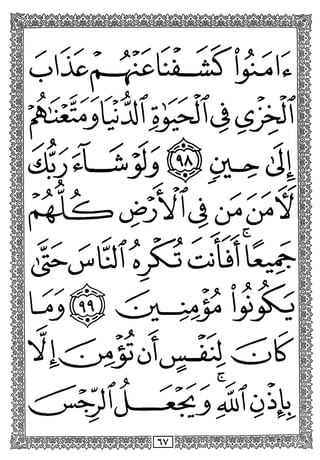 ءَامَنُوا۟ كَشَفْنَا عَنْهُمْ عَذَابَ
ٱلْخِزْىِ فِى ٱلْحَيَوٰةِ ٱلدُّنْيَا وَمَتَّعْنَٰهُمْ
إِلَىٰ حِينٍ ٩٨ وَلَوْ شَآءَ رَبُّكَ
لَءَامَنَ مَن فِى ٱلْأَرْضِ كُلُّهُمْ
جَمِيعًا ۚ أَفَأَنتَ تُكْرِهُ ٱلنَّاسَ حَتَّىٰ
يَكُونُوا۟ مُؤْمِنِينَ ٩٩ وَمَا
كَانَ لِنَفْسٍ أَن تُؤْمِنَ إِلَّا
بِإِذْنِ ٱللَّهِ ۚ وَيَجْعَلُ ٱلرِّجْسَ
٦٧